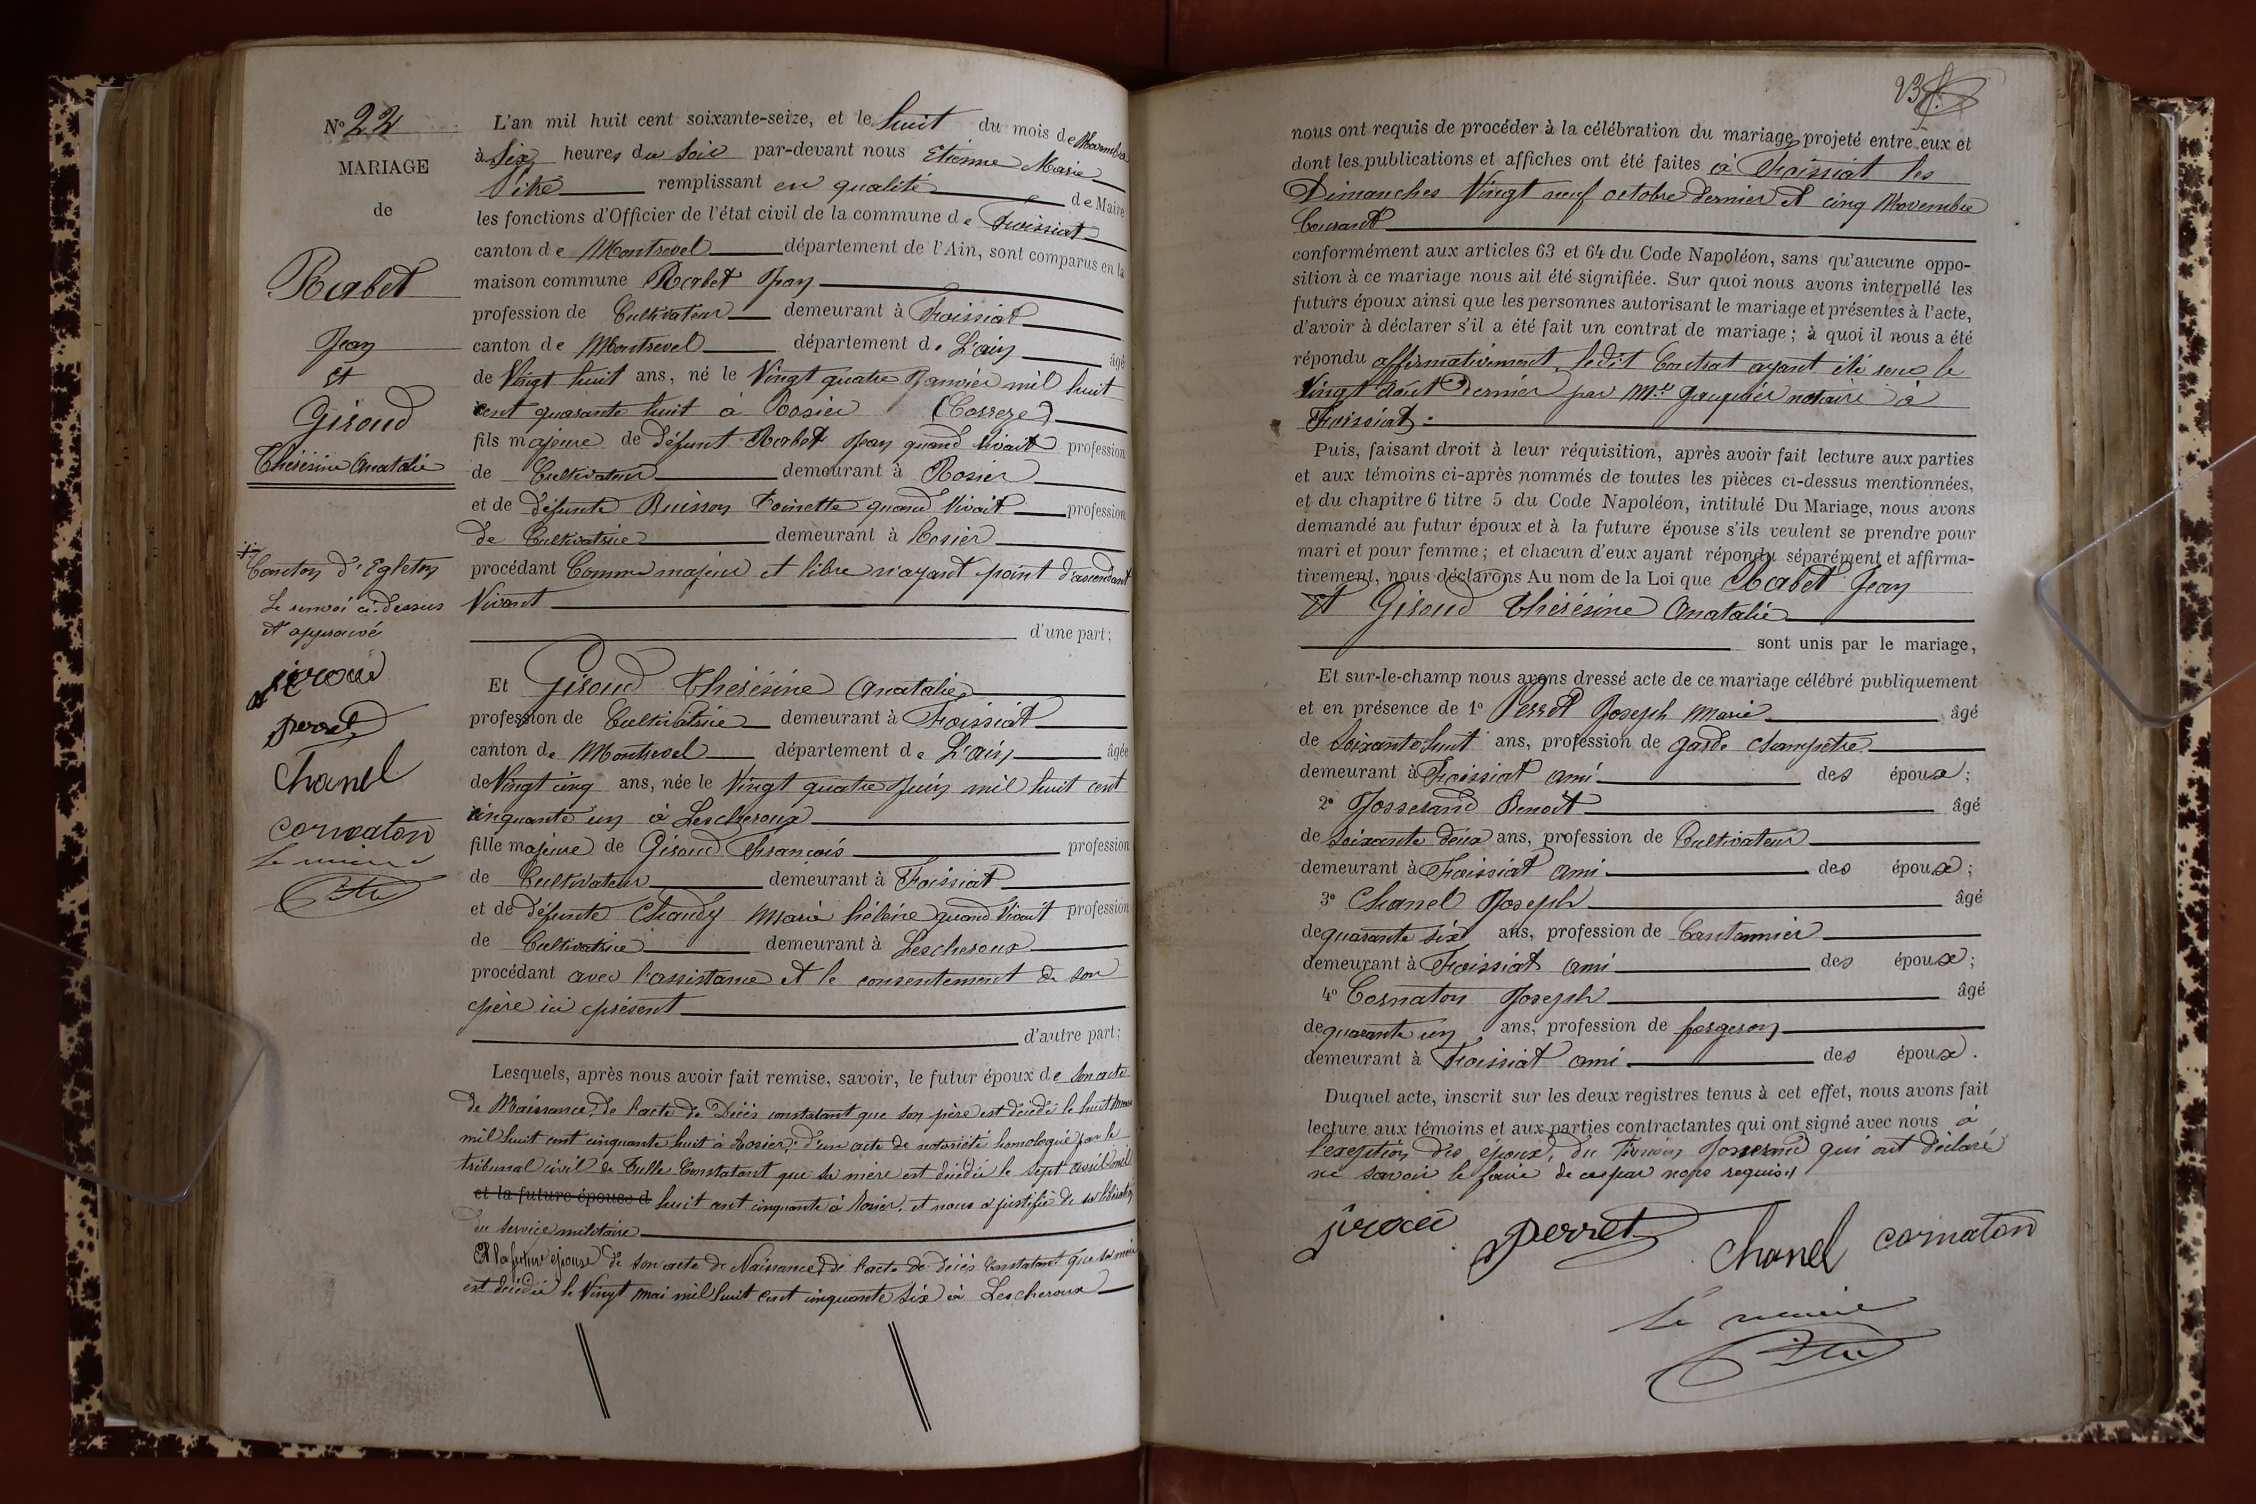 N° 22
MARIAGE
de
Rabet
Jean
et
Giroud
Thérésine Anatalie
Canton d'Egleton
Le renvoi ci-dessus
et approuvé
perret
Chanel
cornaton
Le maire
L'an mil huit cent soixante-seize, et le huit du mois de Novembre
à Six heures du Soir par-devant nous Etienne Marie
remplissant en qualité de Maire
les fonctions d'Officier de l'état civil de la commune de Foissiat
canton de Montrevel département de l'Ain, sont comparus en la
maison commune Rabet Jean
profession de Cultivateur demeurant à Foissiat
canton de Montrevel département de L'ain âgé
de Vingt huit ans, né le Vingt quatre Janvier mil huit
cent quarante huit à Rosier (Correze)
fils majeure de défunt Rabet Jean quand Vivait profession
de Cultivateur demeurant à Rosier
et de défunte Buisson Toinette quand Vivait profession
de Cultivatrice demeurant à Rosier
procédant Comme majeur et libre n'ayant point d'ascendant
Vivant
d'une part;
Et Giroud Thérésine Anatalie
profession de Cultivatrice demeurant à Foissiat
canton de Montrevel département de L'ain âgée
de Vingt cinq ans, née le Vingt quatre Juin mil huit cent
cinquante un à Lescheroux
fille majeure de Giroud François profession
de Cultivateur demeurant à Foissiat
et de défunte Chaudy Marie hélène quand Vivait profession
de Cultivatrice demeurant à Lescheroux
procédant avec l'assistance et le consentement de son
père ici présent
d'autre part;
Lesquels, après nous avoir fait remise, savoir, le futur époux de son acte
de Naissance, de l'acte de Décès constatant que son père est décédé le huit
mil huit cent cinquante huit à Rosier, d'un acte de notoriété homologué par le
tribunal civil de Tulle Constatant que sa mère est décédée le sept avril mil
et la future épouse d huit cent cinquante à Rosier. et nous a justifié de sa libération
du service militaire
Et la future épouse de son acte de Naissance, de l'acte de décès Constatant que sa mère
est décédée le Vingt mai mil huit cent cinquante six à Lescheroux
23
nous ont requis de procéder à la célébration du mariage projeté entre eux et
dont les publications et affiches ont été faites à Foissiat les
Dimanches Vingt neuf octobre dernier et cinq Novembre
Courant
conformément aux articles 63 et 64 du Code Napoléon, sans qu'aucune oppo-
sition à ce mariage nous ait été signifiée. Sur quoi nous avons interpellé les
futurs époux ainsi que les personnes autorisant le mariage et présentes à l'acte,
d'avoir à déclarer s'il a été fait un contrat de mariage; à quoi il nous a été
répondu affirmativement, ledit Contrat ayant été reçu le
Vingt Août dernier par Me notaire à
Foissiat.
Puis, faisant droit à leur réquisition, après avoir fait lecture aux parties
et aux témoins ci-après nommés de toutes les pièces ci-dessus mentionnées,
et du chapitre 6 titre 5 du Code Napoléon, intitulé Du Mariage, nous avons
demandé au futur époux et à la future épouse s'ils veulent se prendre pour
mari et pour femme; et chacun d'eux ayant répondu séparément et affirma-
tivement, nous déclarons Au nom de la Loi que Rabet Jean
et Giroud Thérésine Anatalie
sont unis par le mariage,
Et sur-le-champ nous avons dressé acte de ce mariage célébré publiquement
et en présence de 1° Perret Joseph Marie âgé
de Soixante huit ans, profession de garde champêtre
demeurant à Foissiat ami des époux;
2° Josserand Benoit âgé
de soixante deux ans, profession de Cultivateur
demeurant à Foissiat ami des époux;
3° Chanel Joseph âgé
de quarante six ans, profession de Cantonnier
demeurant à Foissiat ami des époux;
4° Cornaton Joseph âgé
de quarante un ans, profession de forgeron
demeurant à Foissiat ami des époux.
Duquel acte, inscrit sur les deux registres tenus à cet effet, nous avons fait
lecture aux témoins et aux parties contractantes qui ont signé avec nous à
l'exeption des époux, du Témoin Josserand qui ont déclaré
ne savoir le faire de ce par nous requis
perret Chanel cornaton
Le maire